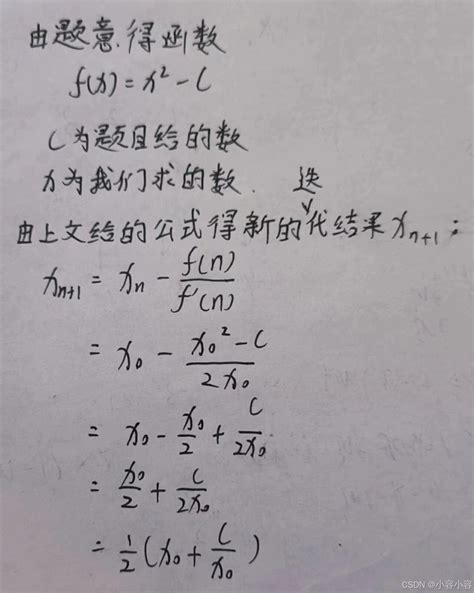 由题意,得函数
f(x) = x² - C
C为题目给的数
x为我们求的数.
由上文给的公式得新的迭代结果 xₙ₊₁:
xₙ₊₁ = xₙ - f(n)/f'(n)
= x₀ - (x₀² - C)/(2x₀)
= x₀ - x₀/2 + C/(2x₀)
= x₀/2 + C/(2x₀)
= 1/2 (x₀ + C/x₀)
CSDN @小容小容